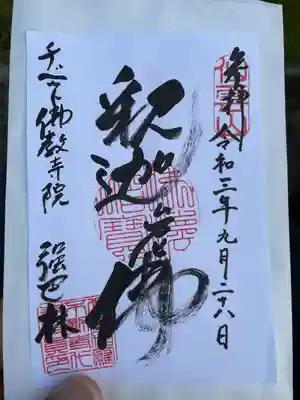 奉拝 令和三年九月二十八日
釈迦牟尼佛
チベット佛教寺院 強巴林